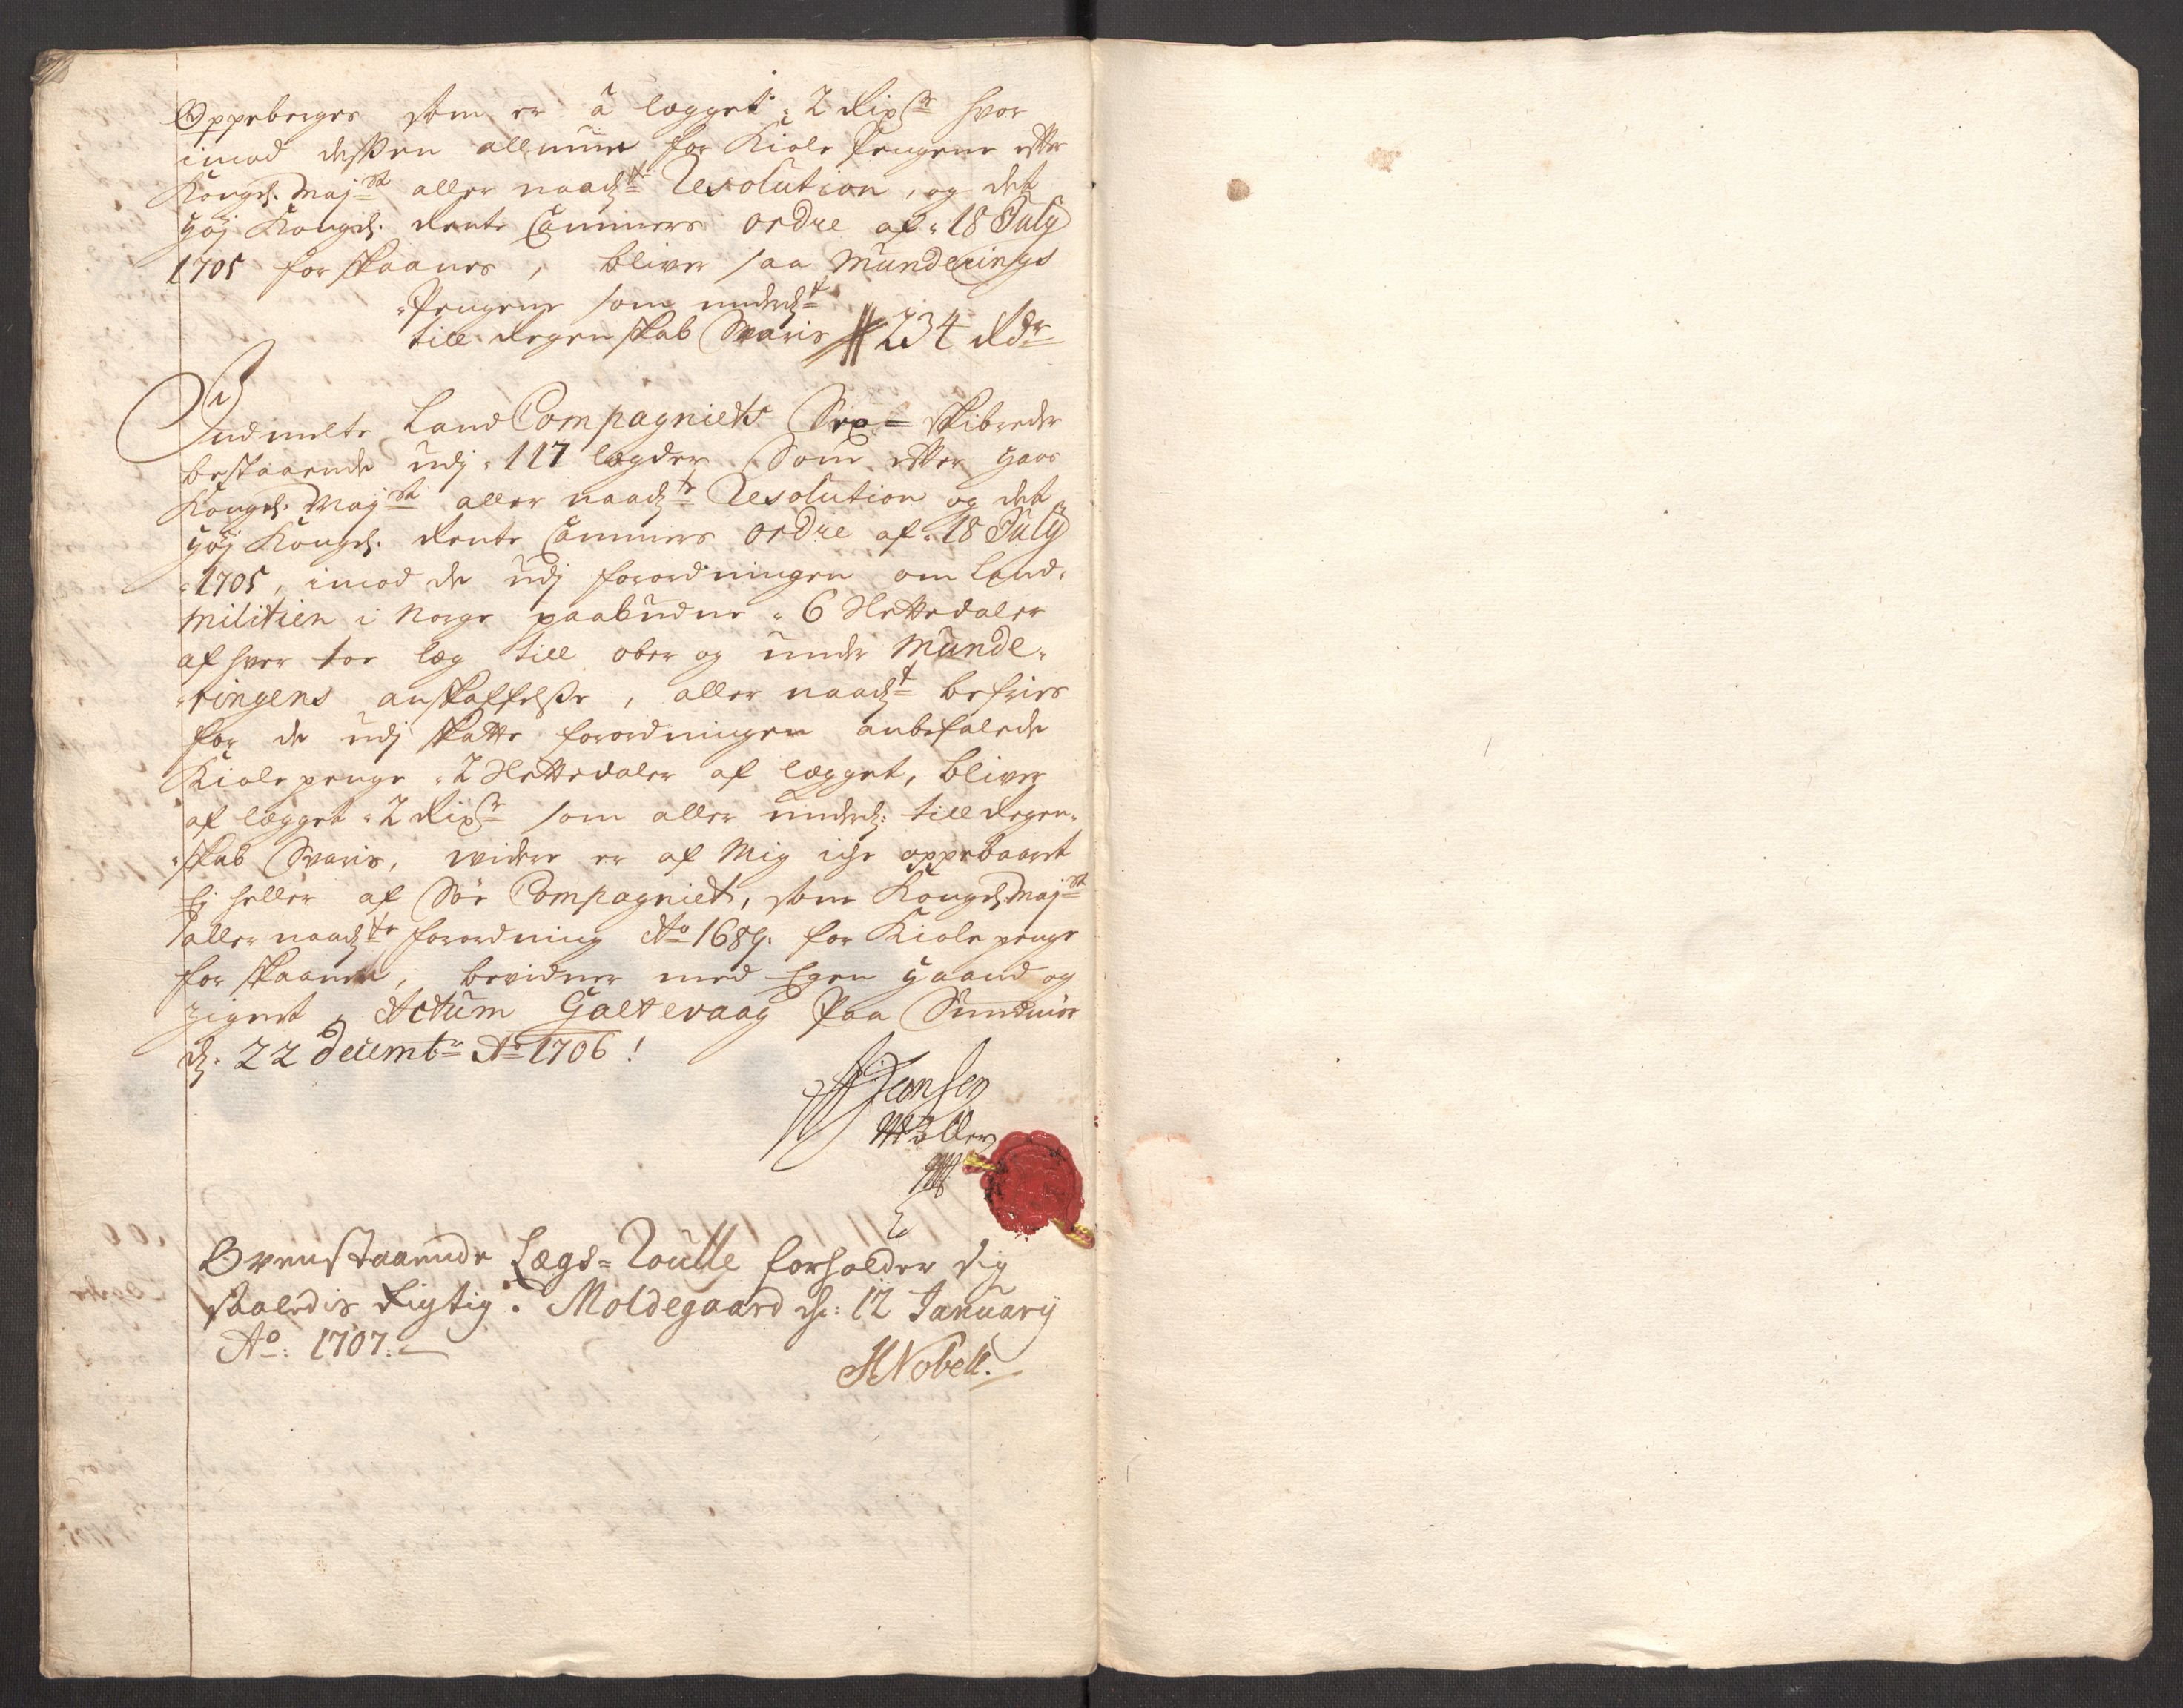 Oppeberges som er â lægget 2 Rixdr hvor
imod dessen allmue for Kiole Pengene efter
Kongel. Majst aller naadste Resolution, og det
Høj Kongel. Rente Cammers ordre af 18 July
1705 forskaanes, bliver saa Munderings
Pengene som underdt
till Regenskab Svaris 234 Rdr
Indmelte Land Compagniets Sex skibreder
bestaaende udj 117 lægder Som efter Hans
Kongel. Majst aller naadste Resolution og det
Høj Kongel. Rente Cammers ordre af 18 July
1705, imod de udj forordningen om Land-
Militien i Norge paabudne 6 Slettedaler
af hver tor læg till ober og under Munde-
ringens anskaffelsse, aller naadt befries
for de udj skatte forordningen anbefalede
Kiolepenge 2 Slettedaler af lægget, bliver
af lægget 2 Rixdr som aller underd: till Regen-
skab Svaris, widere er af Mig iche oppebaaret
Ej heller af Söe Compagniet, som Kongel. Majst
aller naadste forordning Ao 1689. for Kiole penge
forskaaner, bevidner med Egen Haand og
Zignet, Actum Galtevaag Paa Sundmör
d. 22 Decembr Ao 1706!
Jensen
Möller
Ovenstaaende Lægs=Roulle forholder sig
saaledis Rigtig. Moldegaard d: 12 January
Ao: 1707.
HNobell.